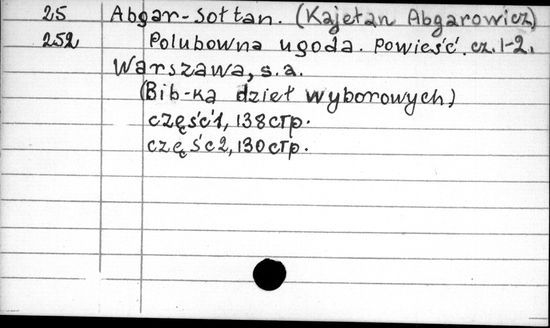 25 Abgar-Sołtan. (Kajetan Abgarowicz)
252 Polubowna ugoda. Powieść. cz. 1-2.
Warszawa, s.a.
(Bib-ka dzieł wyborowych)
część 1, 138 стр.
część 2, 130 стр.